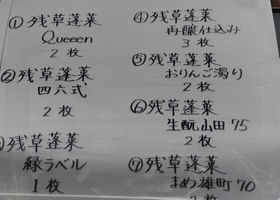 ①残草蓬莱
Queeen
2枚
②残草蓬莱
四六式
2枚
残草蓬莱
緑ラベル
1枚
④残草蓬莱
再醸仕込み
3枚
⑤残草蓬莱
おりんご濁り
2枚
⑥残草蓬莱
生酛山田75
2枚
⑦残草蓬莱
まめ雄町70